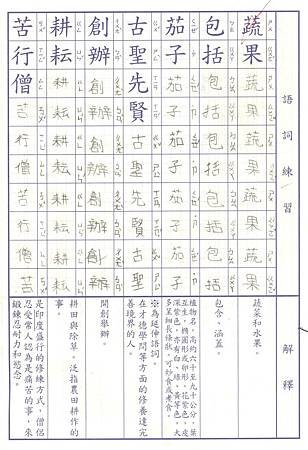 語詞練習
解釋
蔬果蔬果蔬果蔬果蔬果
蔬菜和水果。
包括包括包括包括包括
包含、涵蓋。
茄子茄子茄子茄子茄子
植物名。高約六十至九十公分，葉
互生，橢圓形或卵形，花紫色。
深紫色，亦有白、綠、黃等色，大
多呈細長條狀，可炒食或煮食。
古聖先賢古聖先賢古聖
※為延伸語詞。
在才德學問等方面的修養達完
善境界的人。
創辦創辦創辦創辦創辦
開創舉辦。
耕耘耕耘耕耘耕耘耕耘
耕田與除草。泛指農田耕作的
事。
苦行僧苦行僧苦行僧苦
是印度盛行的修練方式，僧侶
忍受常人認為是痛苦的事，來
鍛鍊忍耐力和意念。